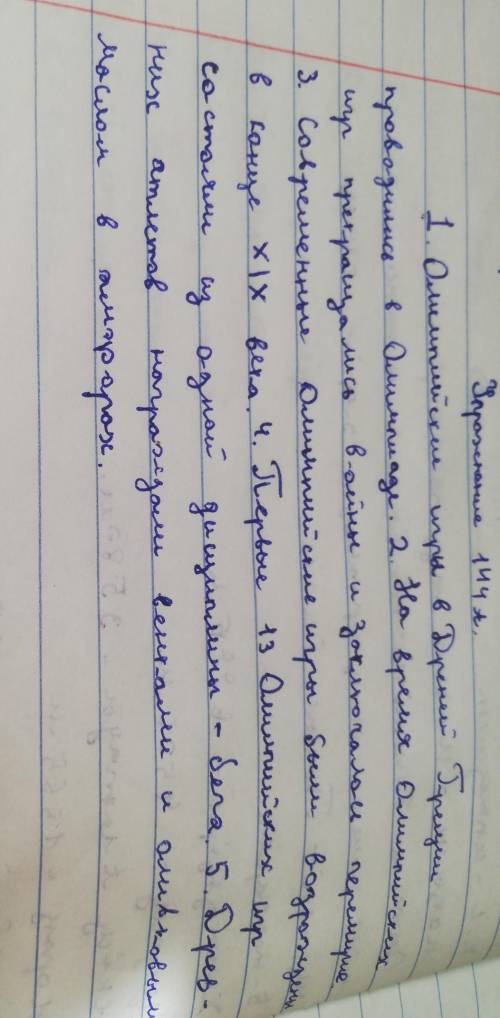 Упражнение 144 л.
1. Олимпийские игры в Древней Греции
проводились в Олимпиаде. 2. На время Олимпийских
игр прекращались войны и заключалось перемирие.
3. Современные Олимпийские игры были возрождены
в конце XIX века. 4. Первые 13 Олимпийских игр
состояли из одной дисциплины - бега. 5. Древ-
них атлетов награждали венками и оливковым
маслом в амфорах.